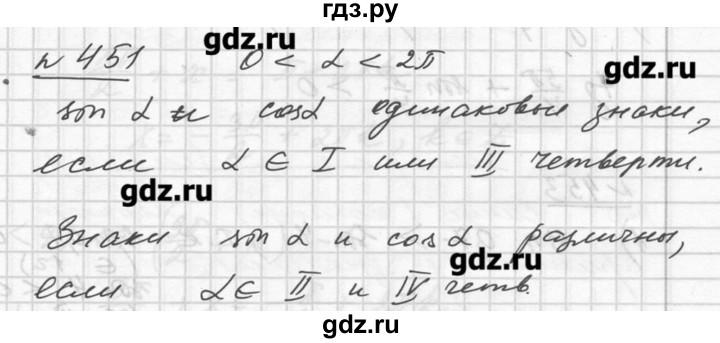 гдз.ру
gdz.ru
№ 451 0 < α < 2π
gdz.ru
sin α и cos α одинаковые знаки,
если α ∈ I или III четверти.
gdz.ru
Знаки sin α и cos α различны,
gdz.ru
если α ∈ II и IV четв.
gdz.ru